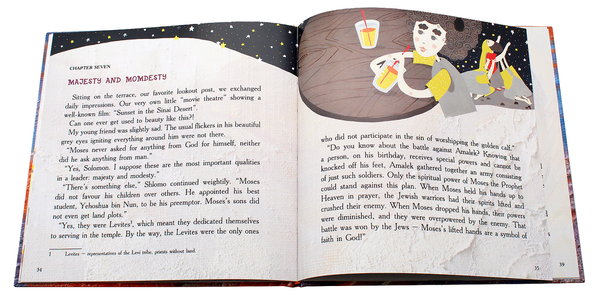 CHAPTER SEVEN
MAJESTY AND MOMDESTY
Sitting on the terrace, our favorite lookout post, we exchanged
daily impressions. Our very own little "movie theatre" showing a
well-known film: "Sunset in the Sinai Desert".
Can one ever get used to beauty like this?!
My young friend was slightly sad. The usual flickers in his beautiful
grey eyes igniting everything around him were not there.
"Moses never asked for anything from God for himself, neither
did he ask anything from man."
"Yes, Solomon. I suppose these are the most important qualities
in a leader: majesty and modesty."
"There's something else," Shlomo continued weightily. "Moses
did not favour his children over others. He appointed his best
student, Yehoshua bin Nun, to be his preemptor. Moses's sons did
not even get land plots."
"Yes, they were Levites¹, which meant they dedicated themselves
to serving in the temple. By the way, the Levites were the only ones
1 Levites – representations of the Levi tribe, priests without land.
34
who did not participate in the sin of worshipping the golden calf."
"Do you know about the battle against Amalek? Knowing that
a person, on his birthday, receives special powers and cannot be
knocked off his feet, Amalek gathered together an army consisting
of just such soldiers. Only the spiritual power of Moses the Prophet
could stand against this plan. When Moses held his hands up to
Heaven in prayer, the Jewish warriors had their spirits lifted and
crushed their enemy. When Moses dropped his hands, their powers
were diminished, and they were overpowered by the enemy. That
battle was won by the Jews – Moses's lifted hands are a symbol of
faith in God!"
35
39